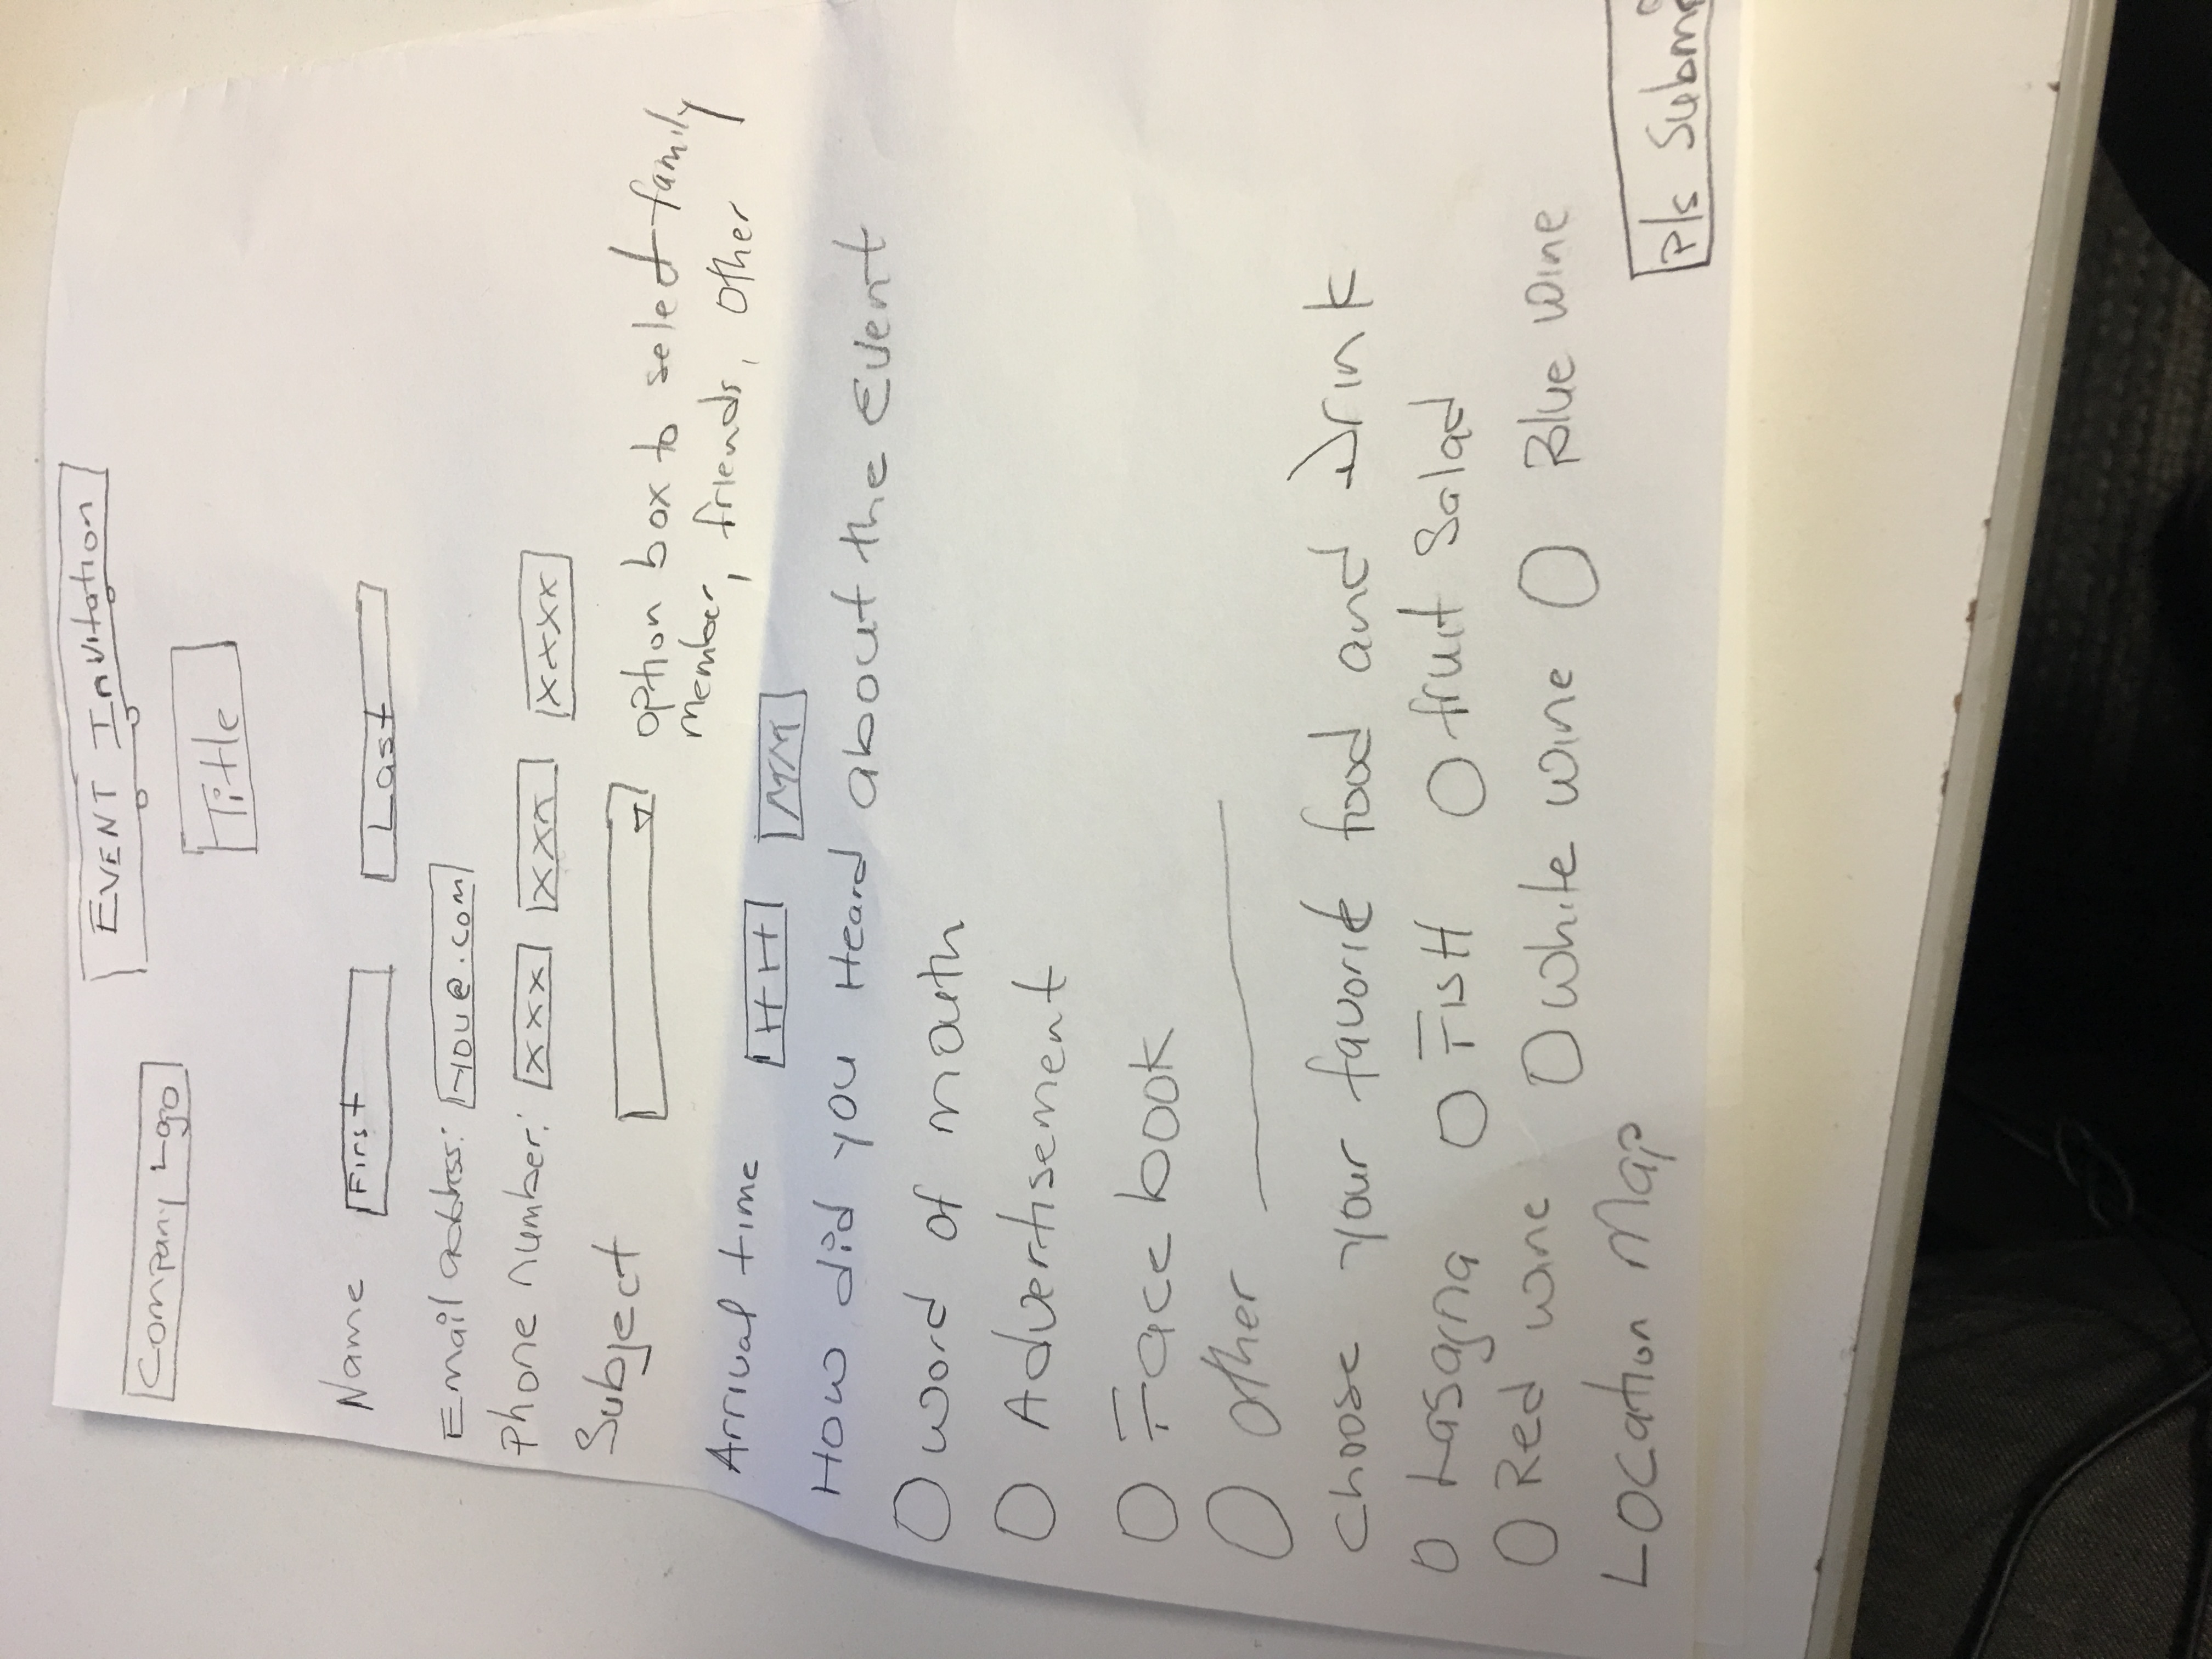 EVENT Invitation
Company Logo
Title
Name First Last
Email address: you@.com
Phone number: xxx xxx xxxx
Subject option box to select family
member, friends, other
Arrival time HH MM
How did you Heard about the Event
word of mouth
Advertisement
Face book
other
choose your favorite food and Drink
Lasagna FisH fruit Salad
Red wine white wine Blue wine
Location Map
Pls Submi